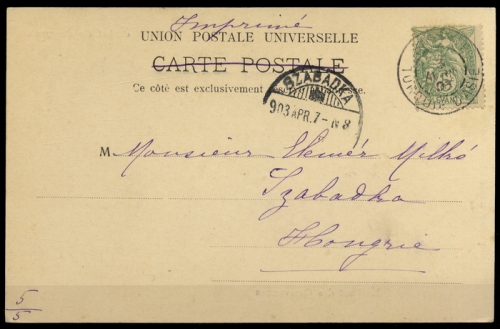 Imprimé
UNION POSTALE UNIVERSELLE
CARTE POSTALE
Ce côté est exclusivement
SZABADKA
903 APR. 7 - N 8
M Monsieur Elemér Milkó
Szabadka
Hongrie
5/5